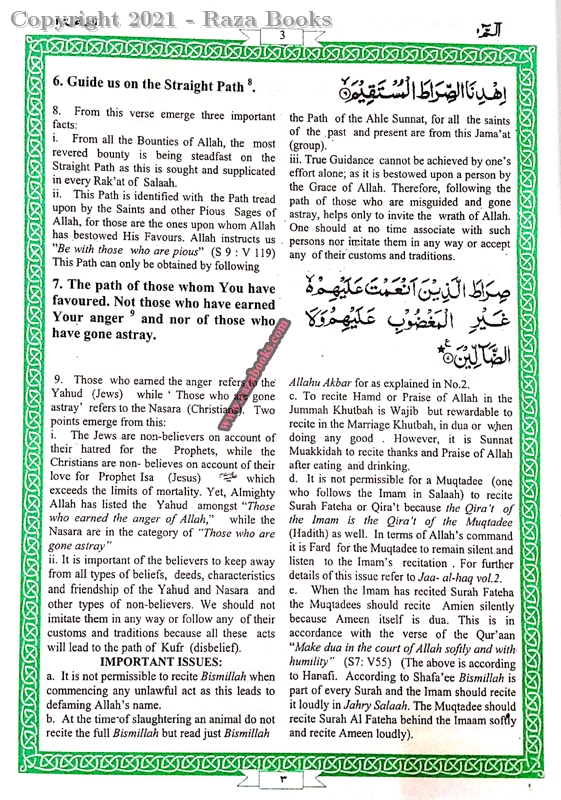 Copyright 2021 - Raza Books
3
الٓمّٓ
6. Guide us on the Straight Path ⁸.
اِهْدِنَا الصِّرَاطَ الْمُسْتَقِيْمَ ۙ
8. From this verse emerge three important
facts:
i. From all the Bounties of Allah, the most
revered bounty is being steadfast on the
Straight Path as this is sought and supplicated
in every Rak'at of Salaah.
ii. This Path is identified with the Path tread
upon by the Saints and other Pious Sages of
Allah, for those are the ones upon whom Allah
has bestowed His Favours. Allah instructs us
"Be with those who are pious" (S 9 : V 119)
This Path can only be obtained by following
the Path of the Ahle Sunnat, for all the saints
of the past and present are from this Jama'at
(group).
iii. True Guidance cannot be achieved by one's
effort alone; as it is bestowed upon a person by
the Grace of Allah. Therefore, following the
path of those who are misguided and gone
astray, helps only to invite the wrath of Allah.
One should at no time associate with such
persons nor imitate them in any way or accept
any of their customs and traditions.
7. The path of those whom You have
favoured. Not those who have earned
Your anger ⁹ and nor of those who
have gone astray.
صِرَاطَ الَّذِيْنَ اَنْعَمْتَ عَلَيْهِمْ ۙ
غَيْرِ الْمَغْضُوْبِ عَلَيْهِمْ وَلَا
الضَّآلِّيْنَ
9. Those who earned the anger refers to the
Yahud (Jews) while ' Those who are gone
astray' refers to the Nasara (Christians). Two
points emerge from this:
i. The Jews are non-believers on account of
their hatred for the Prophets, while the
Christians are non- believes on account of their
love for Prophet Isa (Jesus) which
exceeds the limits of mortality. Yet, Almighty
Allah has listed the Yahud amongst "Those
who earned the anger of Allah," while the
Nasara are in the category of "Those who are
gone astray"
ii. It is important of the believers to keep away
from all types of beliefs, deeds, characteristics
and friendship of the Yahud and Nasara and
other types of non-believers. We should not
imitate them in any way or follow any of their
customs and traditions because all these acts
will lead to the path of Kufr (disbelief).
IMPORTANT ISSUES:
a. It is not permissible to recite Bismillah when
commencing any unlawful act as this leads to
defaming Allah's name.
b. At the time of slaughtering an animal do not
recite the full Bismillah but read just Bismillah
Allahu Akbar for as explained in No.2.
c. To recite Hamd or Praise of Allah in the
Jummah Khutbah is Wajib but rewardable to
recite in the Marriage Khutbah, in dua or when
doing any good . However, it is Sunnat
Muakkidah to recite thanks and Praise of Allah
after eating and drinking.
d. It is not permissible for a Muqtadee (one
who follows the Imam in Salaah) to recite
Surah Fateha or Qira't because the Qira't of
the Imam is the Qira't of the Muqtadee
(Hadith) as well. In terms of Allah's command
it is Fard for the Muqtadee to remain silent and
listen to the Imam's recitation . For further
details of this issue refer to Jaa- al-haq vol.2.
e. When the Imam has recited Surah Fateha
the Muqtadees should recite Amien silently
because Ameen itself is dua. This is in
accordance with the verse of the Qur'aan
"Make dua in the court of Allah softly and with
humility" (S7: V55) (The above is according
to Hanafi. According to Shafa'ee Bismillah is
part of every Surah and the Imam should recite
it loudly in Jahry Salaah. The Muqtadee should
recite Surah Al Fateha behind the Imaam softly
and recite Ameen loudly).
www.raza-books.com
٣